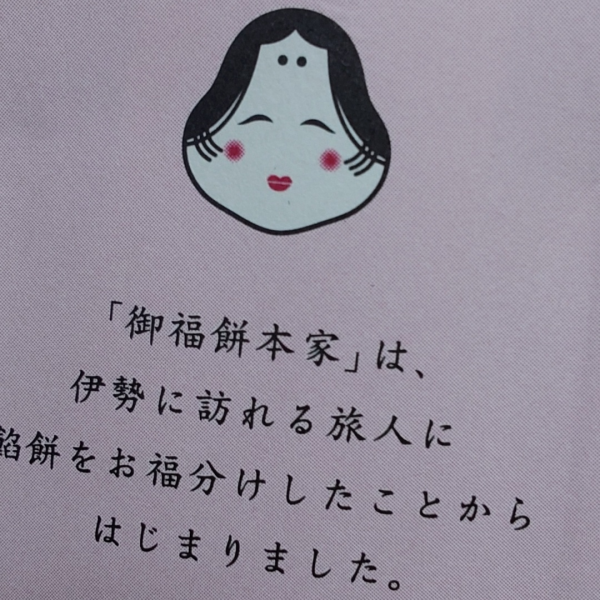 「御福餅本家」は、
伊勢に訪れる旅人に
餡餅をお福分けしたことから
はじまりました。